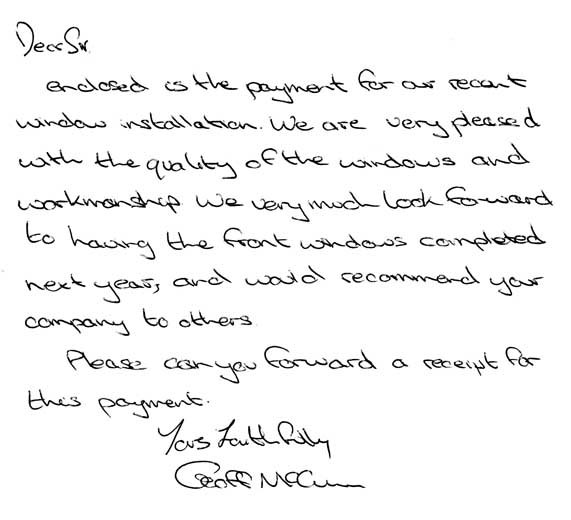 Dear Sir
enclosed is the payment for our recent
window installation. We are very pleased
with the quality of the windows and
workmanship. We very much look forward
to having the front windows completed
next year, and would recommend your
company to others.
Please can you forward a receipt for
this payment.
Yours faithfully
Geoff